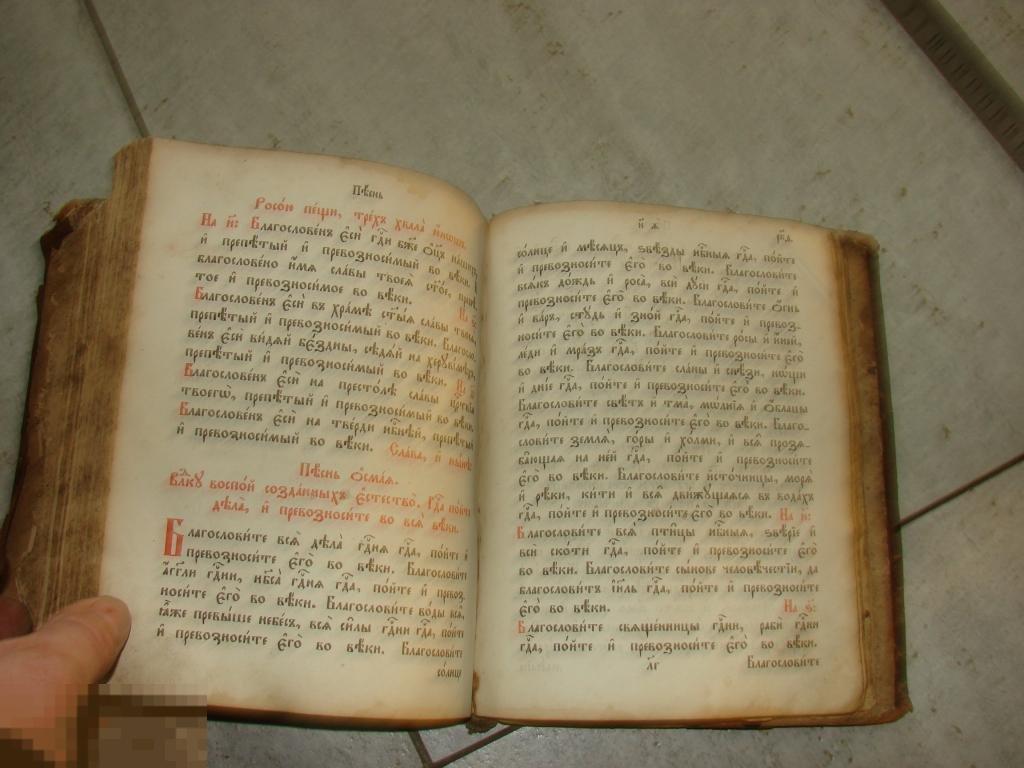 Пѣснь
Росо́ю пе́щи, тре́хъ хвала̀
На и҃: Благослове́нъ є҆сѝ гдⷭ҇и бж҃е ѻ҆ц҃ъ
и҆ препѣ́тый и҆ превозноси́мый во вѣ́ки.
благослове́но и҆́мѧ сла́вы твоеѧ̀ ст҃о́е,
тое и҆ превозноси́мое во вѣ́ки. На ѕ҃:
Благослове́нъ є҆сѝ въ хра́мѣ ст҃ы́ѧ сла́вы
препѣ́тый и҆ превозноси́мый во вѣ́ки. Благосло-
ве́нъ є҆сѝ ви́дѧй бє́здны, сѣдѧ́й на херꙋві́мѣхъ,
препѣ́тый и҆ превозноси́мый во вѣ́ки. На
Благослове́нъ є҆сѝ на престо́лѣ сла́вы црⷭ҇твїѧ
твоегѡ̀, препѣ́тый и҆ превозноси́мый во вѣ́ки.
Благослове́нъ є҆сѝ на тве́рди нбⷭ҇нѣй, препѣ́тый
и҆ превозноси́мый во вѣ́ки. Сла́ва, и҆ ны́нѣ
Пѣ́снь ѻ҆сма́ѧ.
Влⷣкꙋ воспо́й созда́нныхъ є҆стество̀. Гдⷭ҇а по́йте
дѣла̀, и҆ превозноси́те во всѧ̑ вѣ́ки.
Благослови́те всѧ̑ дѣла̀ гдⷭ҇нѧ гдⷭ҇а, по́йте и҆
превозноси́те є҆го̀ во вѣ́ки. Благослови́те
а҆́гг҃ли гдⷭ҇ни, нб҃са̀ гдⷭ҇нѧ гдⷭ҇а, по́йте и҆ превоз-
носи́те є҆го̀ во вѣ́ки. Благослови́те во́ды всѧ̑,
ꙗ҆̀же превы́ше небе́съ, всѧ̑ си̑лы гдⷭ҇ни гдⷭ҇а, по́йте
и҆ превозноси́те є҆го̀ во вѣ́ки. Благослови́те
со́лнце
и҃ ѧ
со́лнце и҆ мѣ́сѧцъ, ѕвѣ́зды нбⷭ҇ныѧ гдⷭ҇а, по́йте
и҆ превозноси́те є҆го̀ во вѣ́ки. Благослови́те
всѧ́къ до́ждь и҆ роса̀, всѝ дꙋ́си гдⷭ҇а, по́йте и҆
превозноси́те є҆го̀ во вѣ́ки. Благослови́те ѻ҆́гнь
и҆ ва́ръ, стꙋ́дь и҆ зно́й гдⷭ҇а, по́йте и҆ превоз-
носи́те є҆го̀ во вѣ́ки. Благослови́те ро́сы и҆ и҆́ней,
ле́ди и҆ мра́зъ гдⷭ҇а, по́йте и҆ превозноси́те є҆го̀
во вѣ́ки. Благослови́те сла́ны и҆ снѣ́зи, но́щи
и҆ дні́е гдⷭ҇а, по́йте и҆ превозноси́те є҆го̀ во вѣ́ки.
Благослови́те свѣ́тъ и҆ тма̀, мѡ́лнїѧ и҆ ѻ҆́блацы
гдⷭ҇а, по́йте и҆ превозноси́те є҆го̀ во вѣ́ки. Благо-
слови́те землѧ̀, го́ры и҆ хо́лми, и҆ всѧ̑ прозѧ-
ба́ющаѧ на не́й гдⷭ҇а, по́йте и҆ превозноси́те
є҆го̀ во вѣ́ки. Благослови́те и҆сто́чницы, морѧ̀
и҆ рѣ́ки, ки́ти и҆ всѧ̑ дви́жꙋщаѧсѧ въ вода́хъ
гдⷭ҇а, по́йте и҆ превозноси́те є҆го̀ во вѣ́ки. На и҃:
Благослови́те всѧ̑ пти̑цы нбⷭ҇ныѧ, ѕвѣ́рїе и҆
всѝ ско́ти гдⷭ҇а, по́йте и҆ превозноси́те є҆го̀
во вѣ́ки. Благослови́те сы́нове человѣ́честїи, да
благослови́тъ і҆и҃ль гдⷭ҇а, по́йте и҆ превозноси́те
є҆го̀ во вѣ́ки. На ѕ҃:
Благослови́те свѧще́нницы гдⷭ҇ни, рабѝ гдⷭ҇ни
гдⷭ҇а, по́йте и҆ превозноси́те є҆го̀ во вѣ́ки.
л҃г Благослови́те